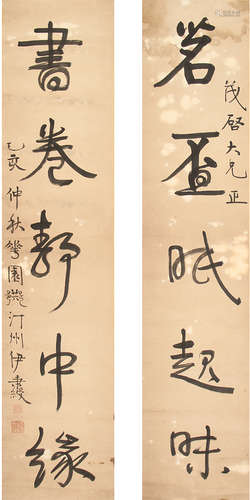 茂啓大兄正
茗盃眠起味
書卷靜中緣
乙亥仲秋
汀州伊秉綬